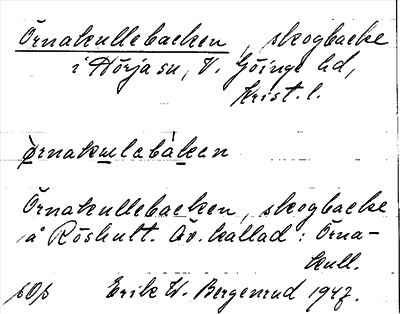 Örnakullebacken, skogbacke
i Hörja sn, V. Göinge hd,
Krist. l.
ørnakuləbàkan
Örnakullebacken, skogbacke
å Röshult. Äv. kallad: Örna-
kull.
pOp Erik W. Bergenrud 1947.